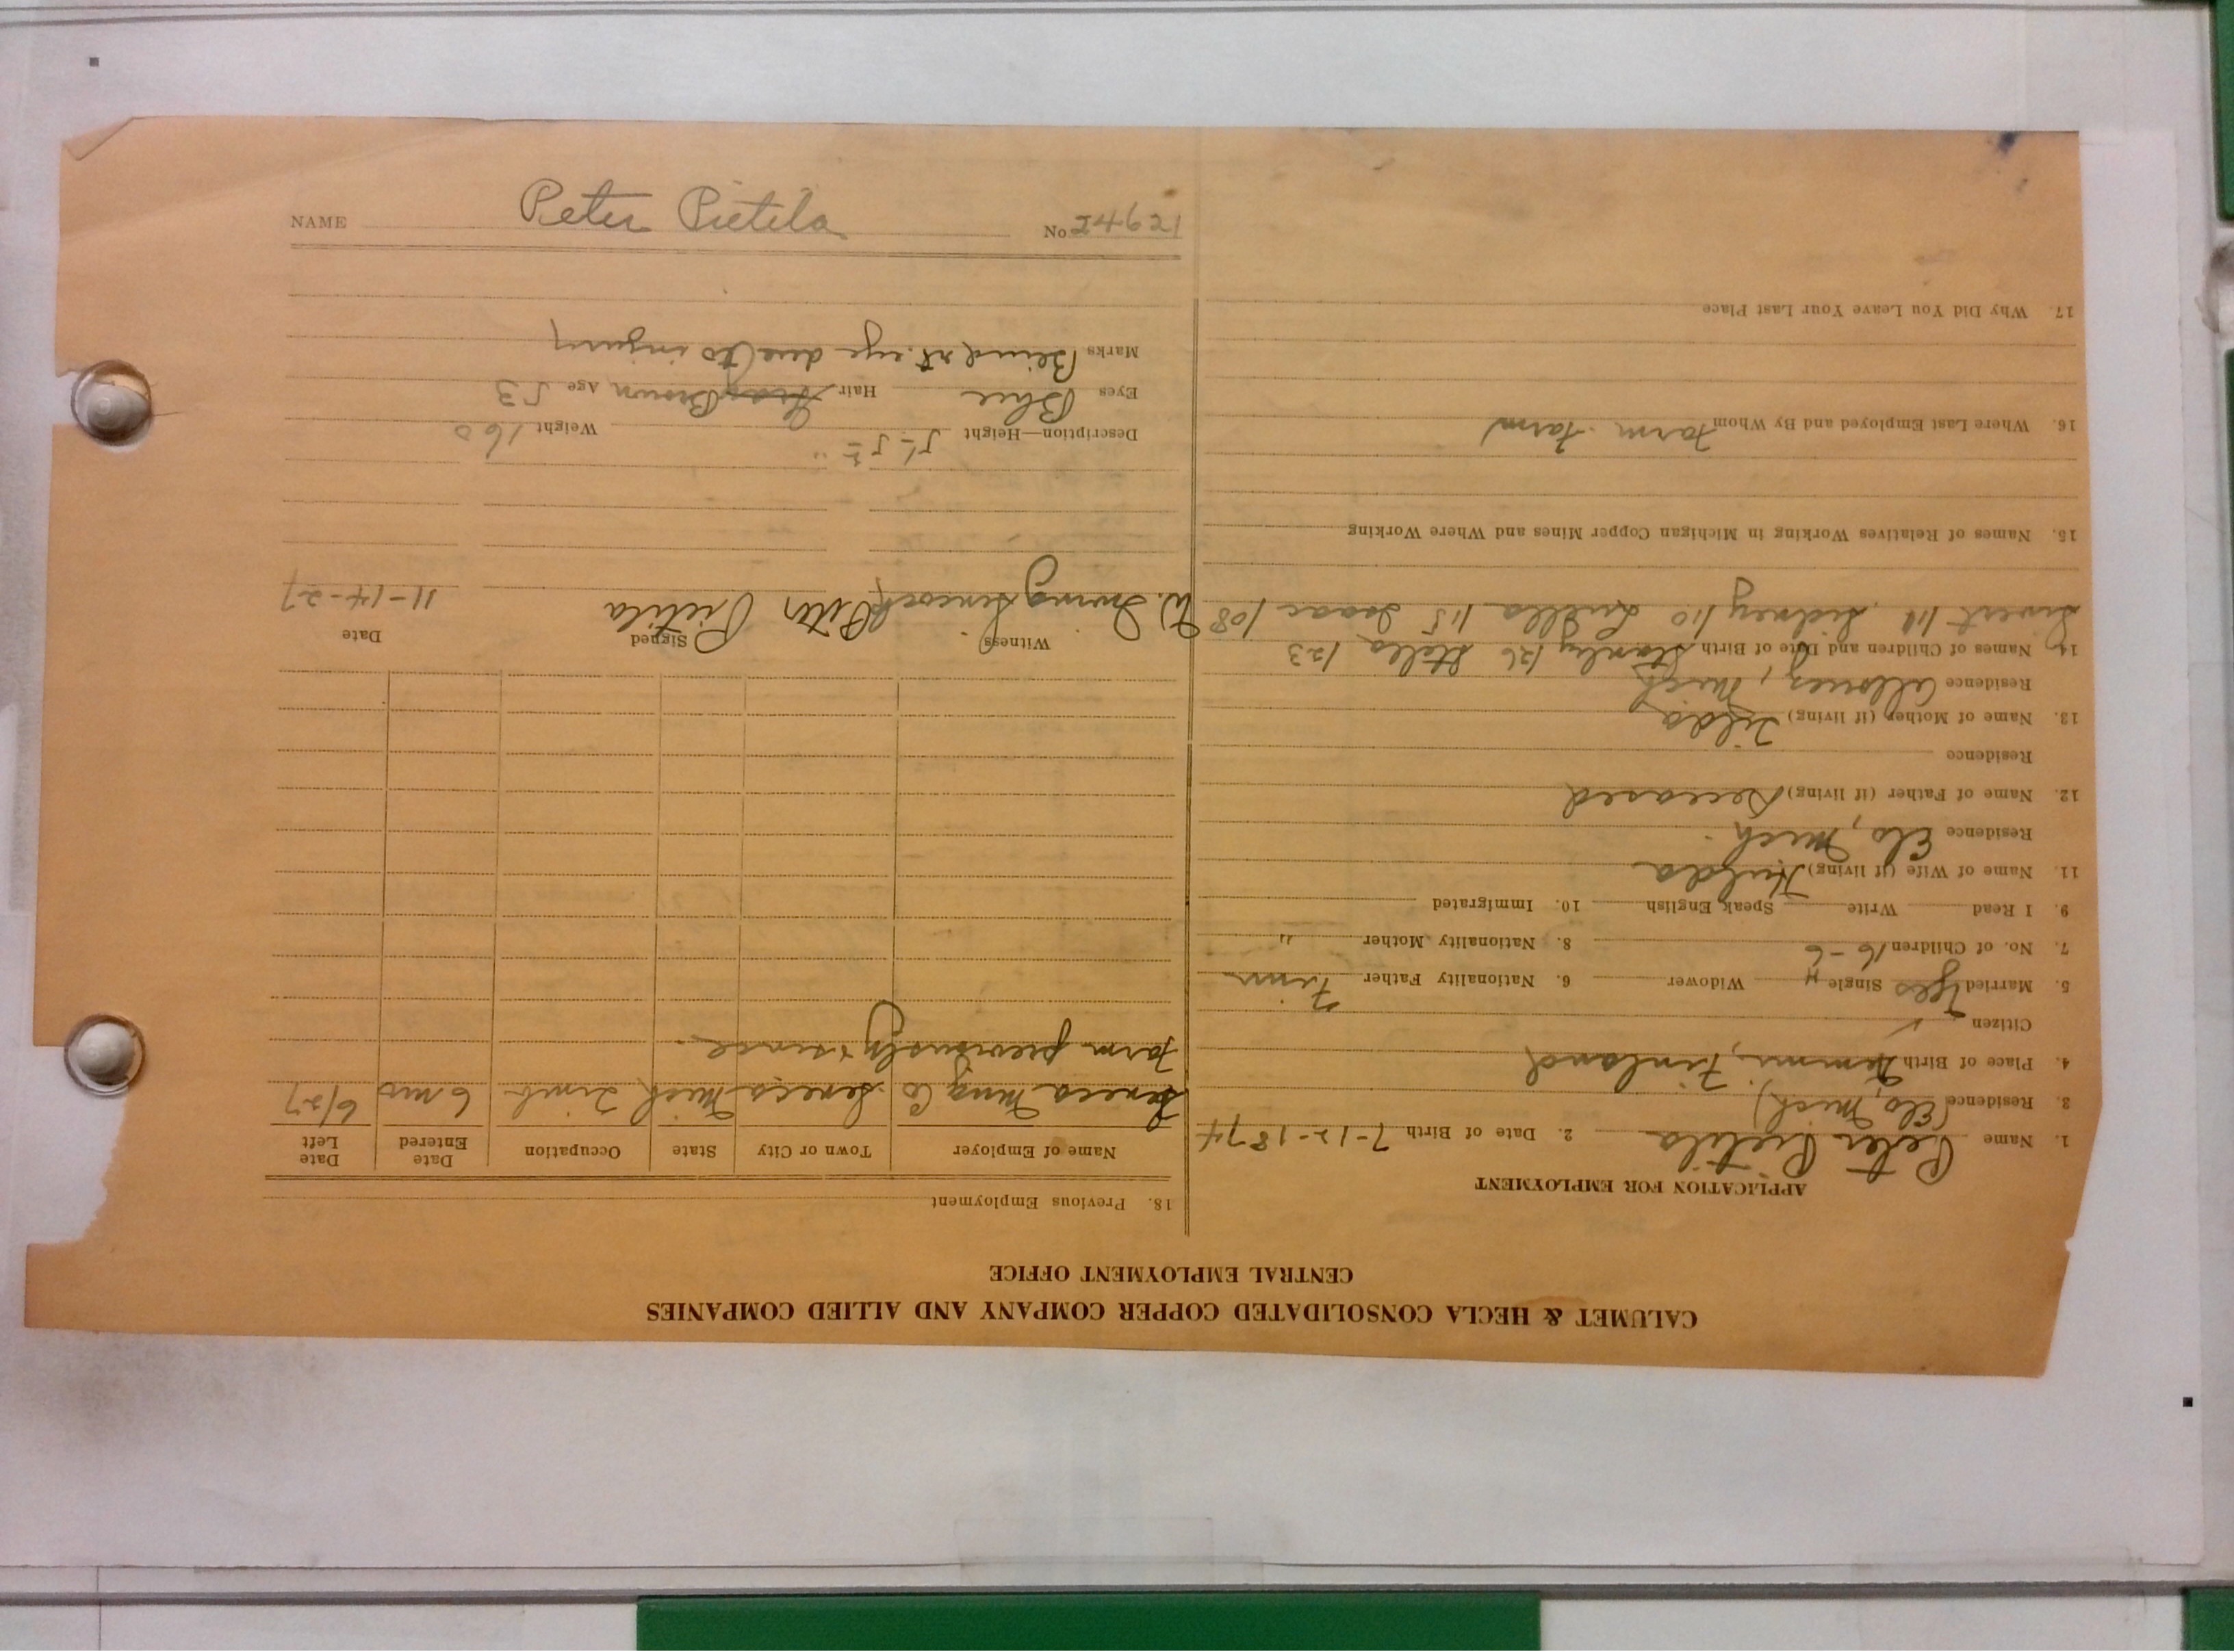 NAME Peter Pietila No 24621
CALUMET & HECLA CONSOLIDATED COPPER COMPANY AND ALLIED COMPANIES
CENTRAL EMPLOYMENT OFFICE
APPLICATION FOR EMPLOYMENT
1. Name Peter Pietila 2. Date of Birth 7-12-1874
3. Residence Elo, Mich
4. Place of Birth Finland
Citizen ✓
5. Married Yes Single Widower 6. Nationality Father Finn
7. No. of Children 16-6 8. Nationality Mother "
9. I Read Write Speak English 10. Immigrated
11. Name of Wife (if living) Hulda
Residence Elo, Mich.
12. Name of Father (if living) Deceased
Residence
13. Name of Mother (if living)
Residence Allouez, Mich
14. Names of Children and Date of Birth Stanly 126 Stella 123
Sidney 110 Luella 115 Isaac 108
15. Names of Relatives Working in Michigan Copper Mines and Where Working
16. Where Last Employed and By Whom Farm. Farm
17. Why Did You Leave Your Last Place
18. Previous Employment
Name of Employer Town or City State Occupation Date Entered Date Left
Seneca Mng Co Seneca Mich Timb 6 mo 6/27
Farm previously & since.
Witness Signed Date
W. Irving Peter Pietila 11-14-27
Description—Height 5'-5 Weight 160
Eyes Blue Hair Brown Age 53
Marks Blind rt. eye due to injury